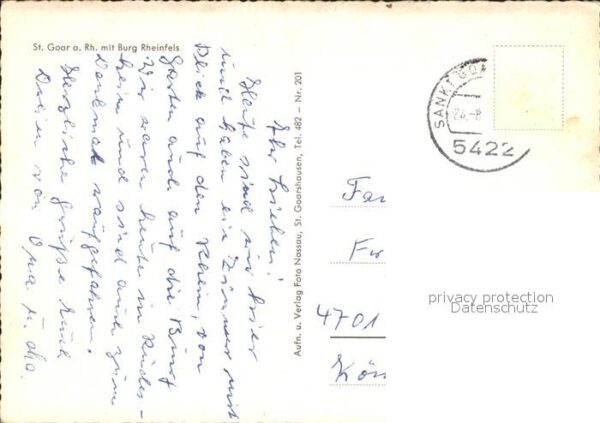 St. Goar a. Rh. mit Burg Rheinfels
Ihr Lieben!
Heute sind wir hier
und haben ein Zimmer mit
Blick auf den Rhein, vom
Garten auch auf die Burg
Wir waren heute in Rüdes-
heim und sind auch zum
Denkmal raufgefahren.
Herzliche Grüße Euch
Dreien von Opa u. Oma.
Aufn. u. Verlag Foto Nassau, St. Goarshausen, Tel. 482 – Nr. 201
SANKT GOA
24.-8
5422
Fa
4701
privacy protection
Datenschutz